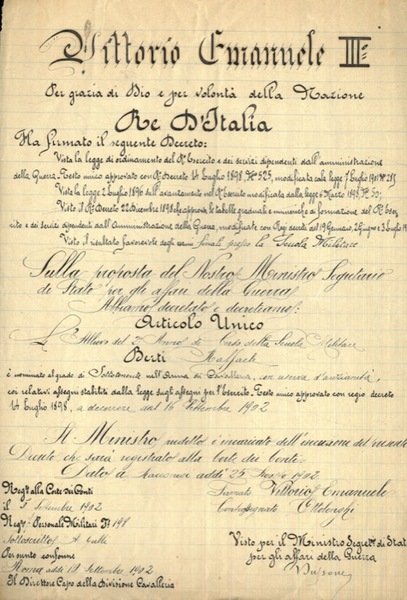 Vittorio Emanuele III°
Per grazia di Dio e per volontà della Nazione
Re D'Italia
Ha firmato il seguente Decreto:
Vista la legge di ordinamento del R° Esercito e dei servizi dipendenti dall'amministrazione
della Guerra - Testo unico approvato con R° Decreto 14 Luglio 1898, N° 525, modificata colla legge 7 Luglio 1901 N° 285
Vista la legge 2 Luglio 1896 dell'avanzamento nel R° Esercito modificata dalla legge 6 Marzo 1898, N° 50;
Visto il R° Decreto 22 Dicembre 1898 che approva le tabelle graduali e numeriche di formazione del R° Eser,
cito e dei servizi dipendenti dall'Amministrazione della Guerra, modificate con Regi decreti del 19 Gennaio, 2 Giugno e 3 Luglio
Visto il risultato favorevole degli esami finali presso la Scuola Militare
Sulla proposta del Nostro Ministro Segretario
di Stato per gli affari della Guerra;
Abbiamo decretato e decretiamo:
Articolo Unico
L'Allievo del 2° Anno di Corso della Scuola Militare
Berti Raffaele
è nominato al grado di Sottotenente nell'Arma di Cavalleria, con riserva d'anzianità,
coi relativi assegni stabiliti dalla legge sugli assegni per l'Esercito. Testo unico approvato con regio decreto
14 Luglio 1898, a decorrere dal 16 Settembre 1902
Il Ministro predetto è incaricato dell'esecuzione del presente
Decreto che sarà registrato alla Corte dei Conti.
Dato a Racconigi addì 25 1902
Reg° alla Corte dei Conti
il Settembre 1902
Firmato Vittorio Emanuele
Reg° Personali Militari
Controfirmato Ottolenghi
Sottoscritto
Per sunto conforme
Roma addì Settembre 1902
Il Direttore Capo della Divisione Cavalleria
Visto per il Ministro Segret° di Stat
per gli affari della Guerra